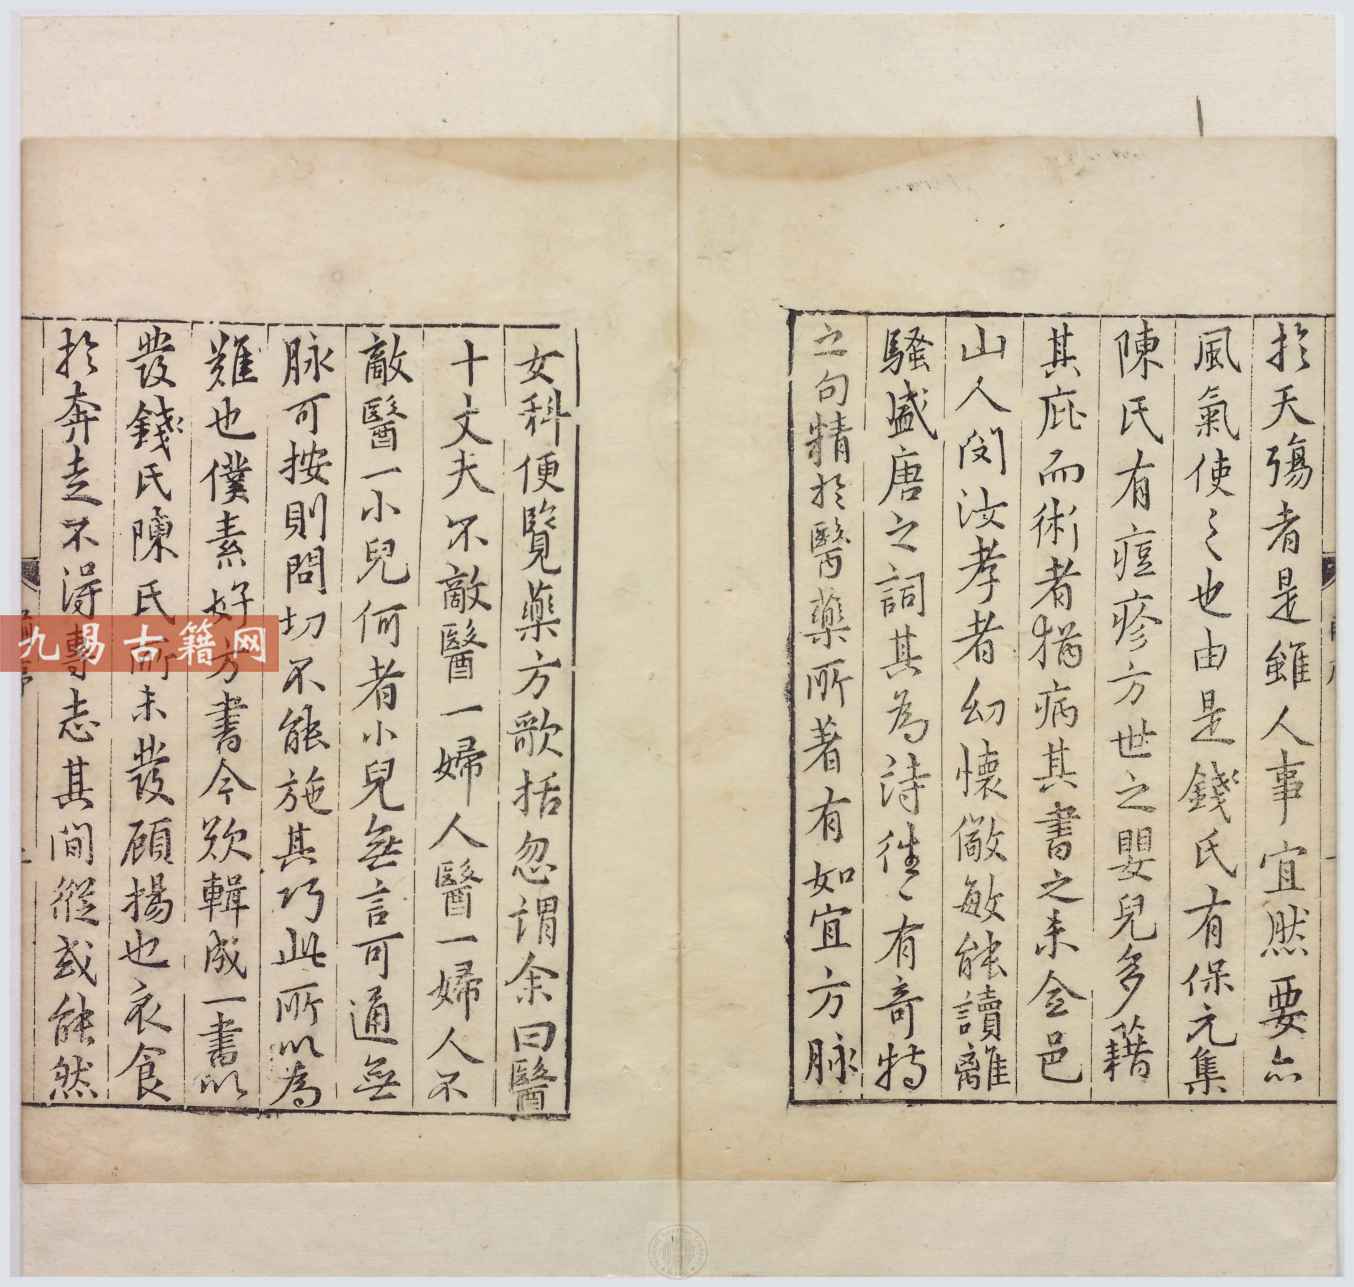 於夭殤者是雖人事宜然要亦
風氣使〻也由是錢氏有保元集
陳氏有痘疹方世之嬰兒多藉
其庇而術者猶病其書之未全邑
山人閔汝孝者幼懷儆敏能讀離
騷盛唐之詞其為詩往〻有奇特
之句精於醫藥所著有如宜方脉
女科便覽藥方歌括忽謂余曰醫
十丈夫不敵醫一婦人醫一婦人不
敵醫一小兒何者小兒無言可通無
脉可按則問切不能施其巧此所以為
難也僕素好方書今欲輯成一書以
發錢氏陳氏所未發顧揚也衣食
於奔走不得專志其間縱或能然
九易古籍网